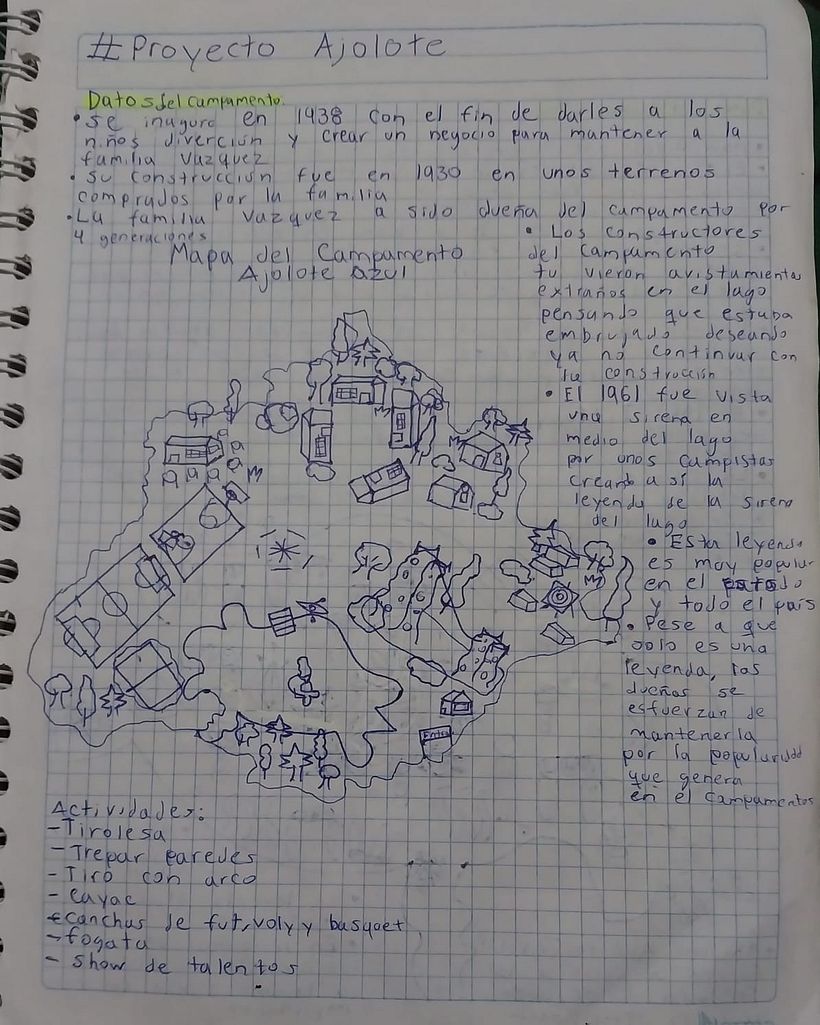 #Proyecto Ajolote
Datos del campamento.
• se inaguro en 1938 con el fin de darles a los
niños diverción y crear un negocio para mantener a la
familia vazquez
• su construcción fue en 1930 en unos terrenos
comprados por la familia
• La familia vazquez a sido dueña del campamento por
4 generaciones
Mapa del Campamento
Ajolote azul
• Los constructores
del campamento
tuvieron avistamientos
extraños en el lago
pensando que estaba
embrujado deseando
ya no continuar con
la construcción
• El 1961 fue vista
una sirena en
medio del lago
por unos campistas
creando a sí la
leyenda de la sirena
del lago
• Esta leyenda
es muy popular
en el estado
y todo el país
• Pese a que
solo es una
leyenda, los
dueños se
esfuerzan de
mantenerla
por la popularidad
que genera
en el campamentos
M
M
M
M
Entra
Actividades:
-Tirolesa
-Trepar paredes
-Tiro con arco
-Cayac
-canchas de fut, voly y basquet
-fogata
- show de talentos